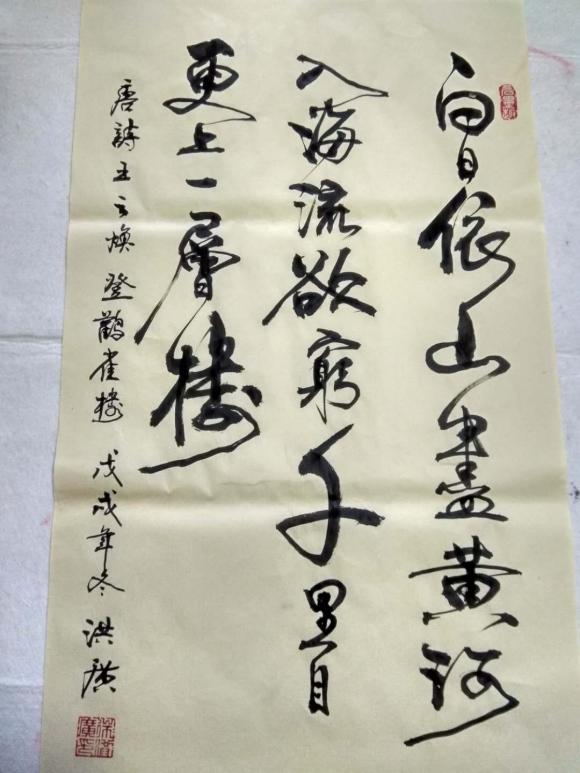 白日依山盡黄河
入海流欲窮千里目
更上一層樓
唐詩王之焕登鸛雀樓 戊戌年冬 洪廣